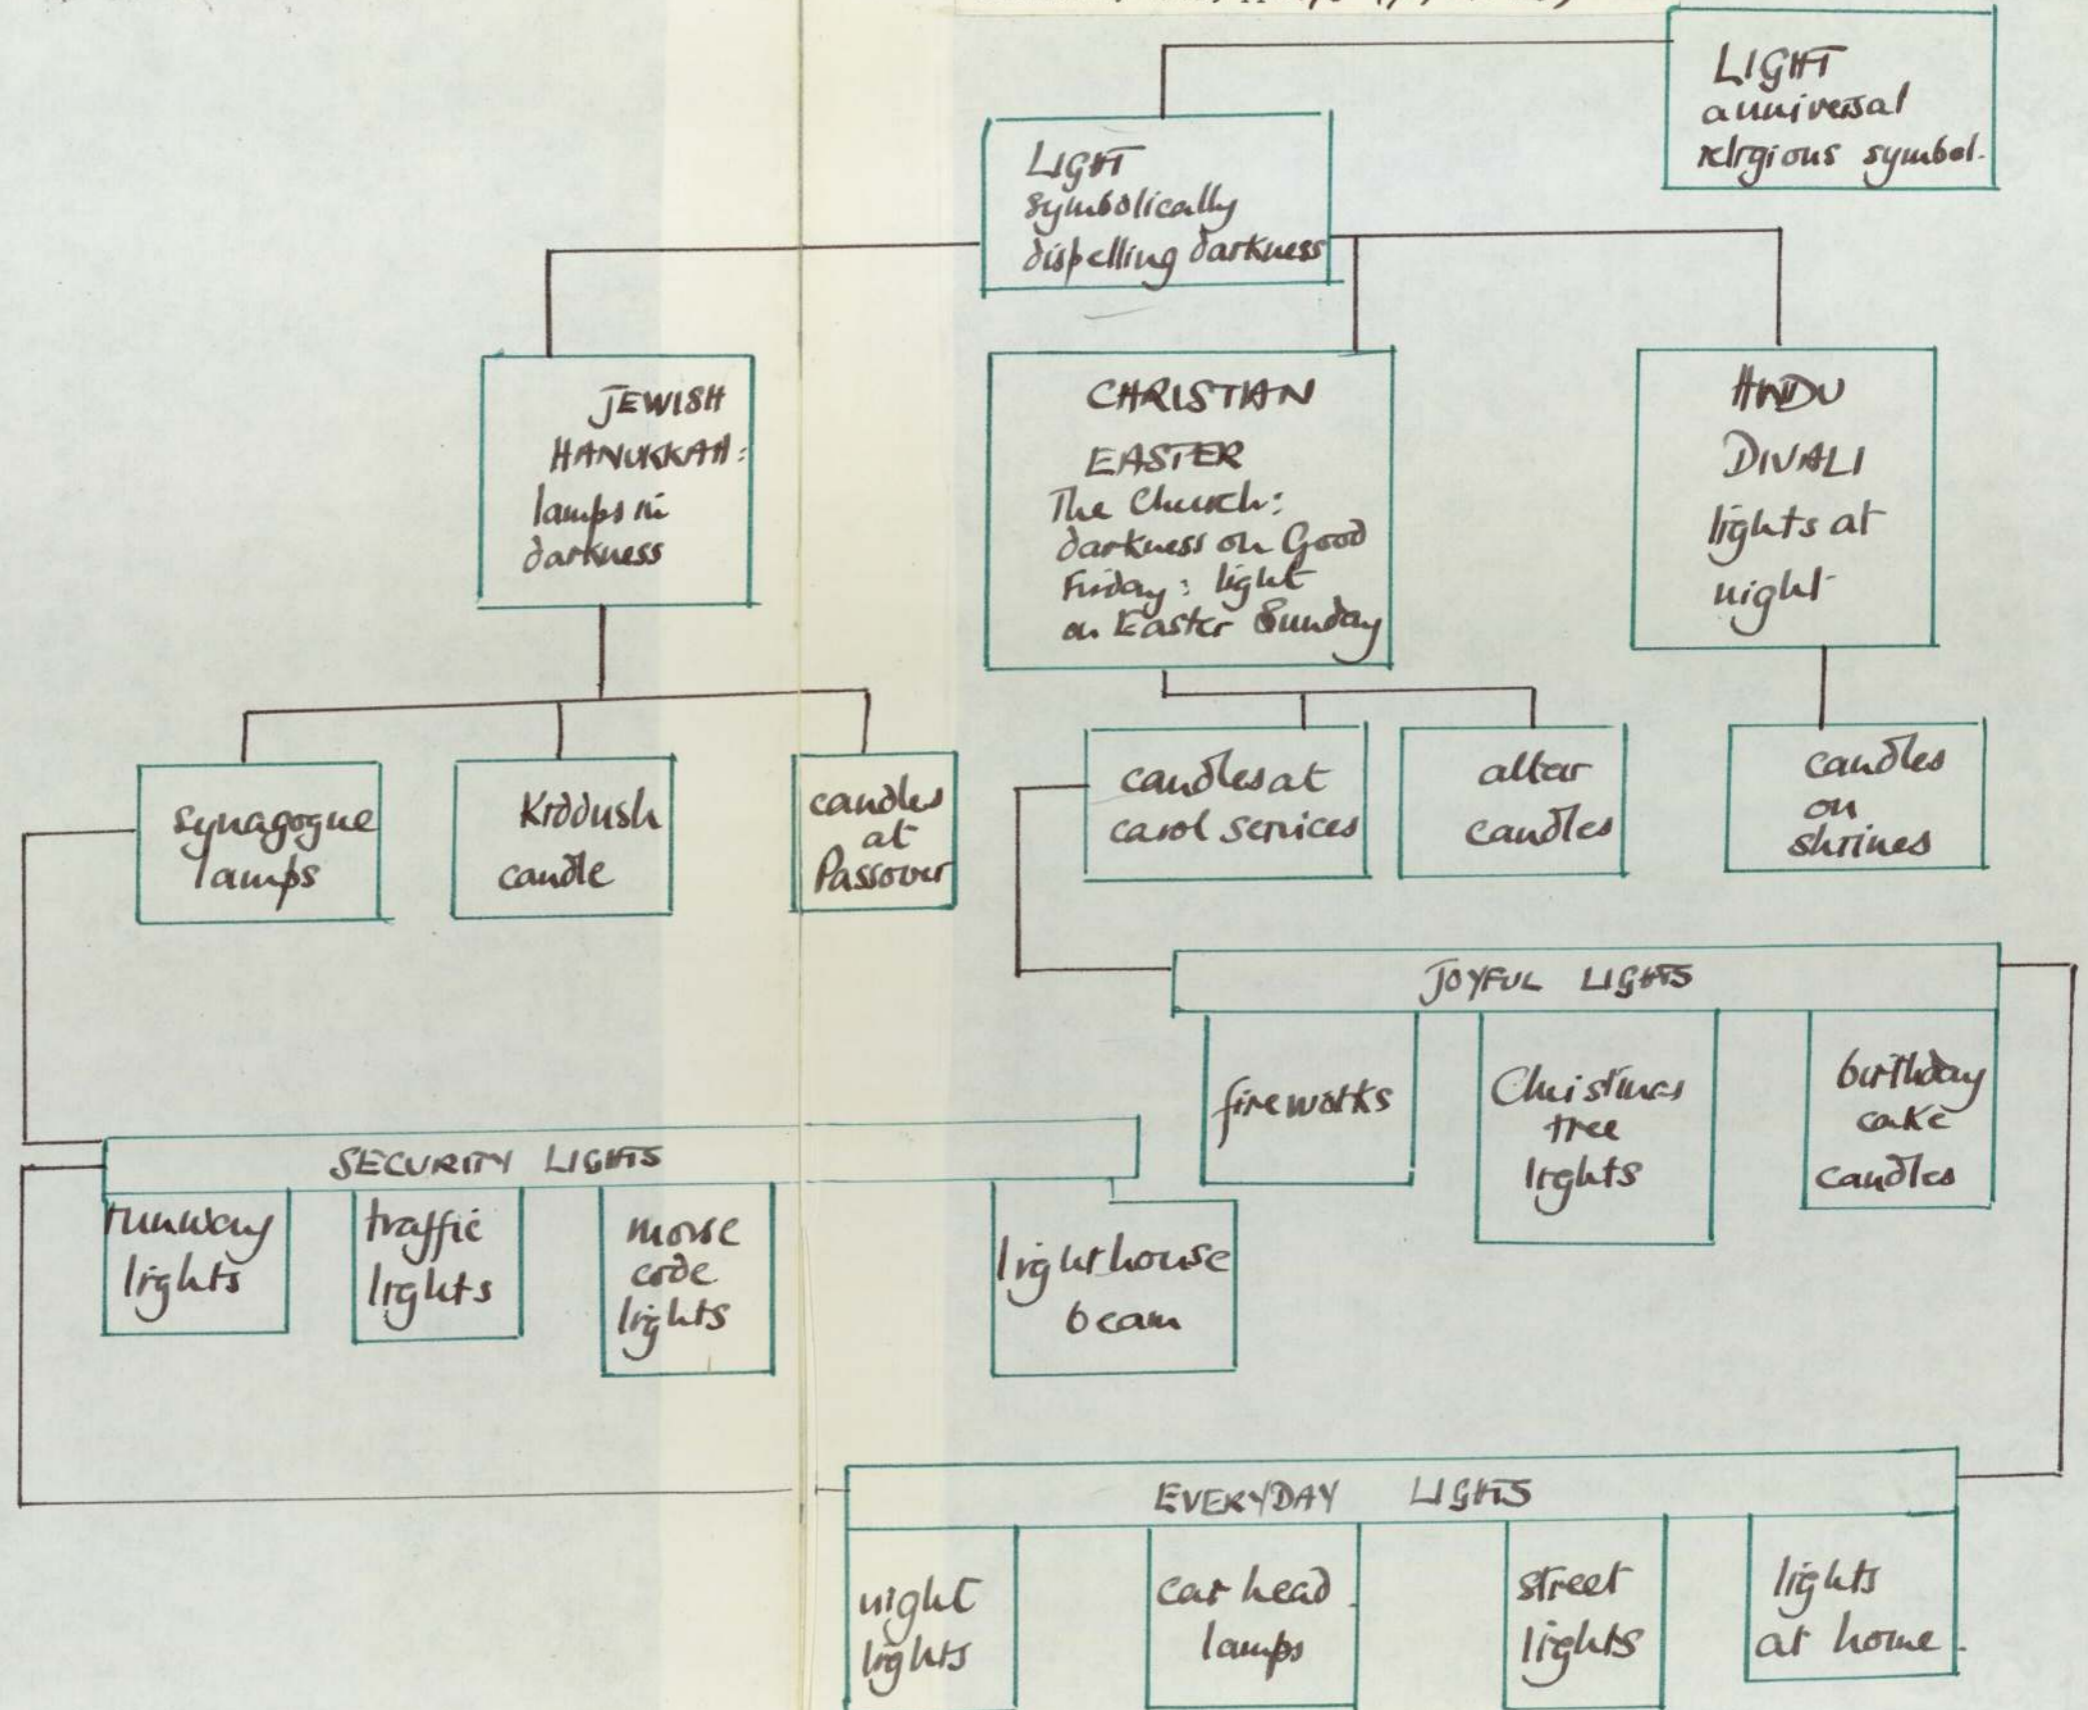 LIGHT
a universal
religious symbol.
LIGHT
symbolically
dispelling darkness
JEWISH
HANUKKAH:
lamps in
darkness
CHRISTIAN
EASTER
The Church:
darkness on Good
Friday: light
on Easter Sunday
HINDU
DIVALI
lights at
night
synagogue
lamps
Kiddush
candle
candles
at
Passover
candles at
carol services
altar
candles
candles
on
shrines
JOYFUL LIGHTS
fireworks
Christmas
tree
lights
birthday
cake
candles
SECURITY LIGHTS
runway
lights
traffic
lights
morse
code
lights
lighthouse
beam
EVERYDAY LIGHTS
night
lights
car head
lamps
street
lights
lights
at home.